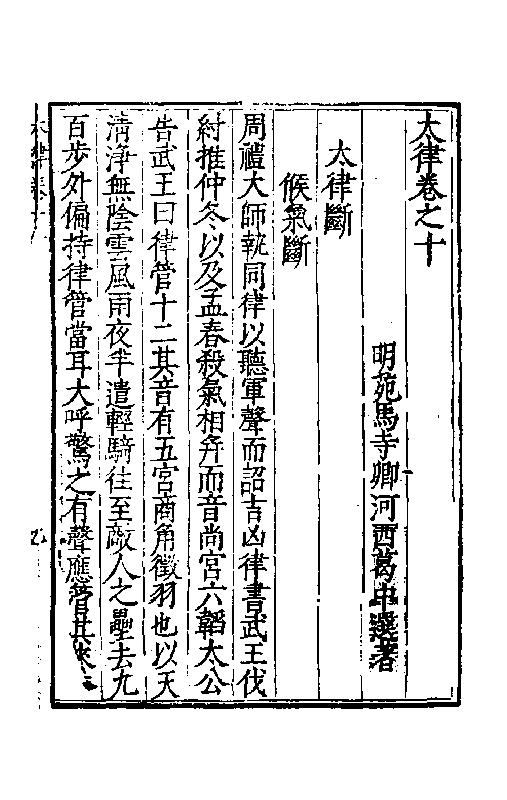 太律卷之十
明苑馬寺卿河西葛中選著
太律斷
候氣斷
周禮大師執同律以聽軍聲而詔吉凶律書武王伐
紂推仲冬以及孟春殺氣相并而音尚宮六韜太公
告武王曰律管十二其音有五宮商角徵羽也以天
清淨無陰雲風雨夜半遣輕騎往至敵人之壘去九
百步外偏持律管當耳大呼驚之有聲應管其來